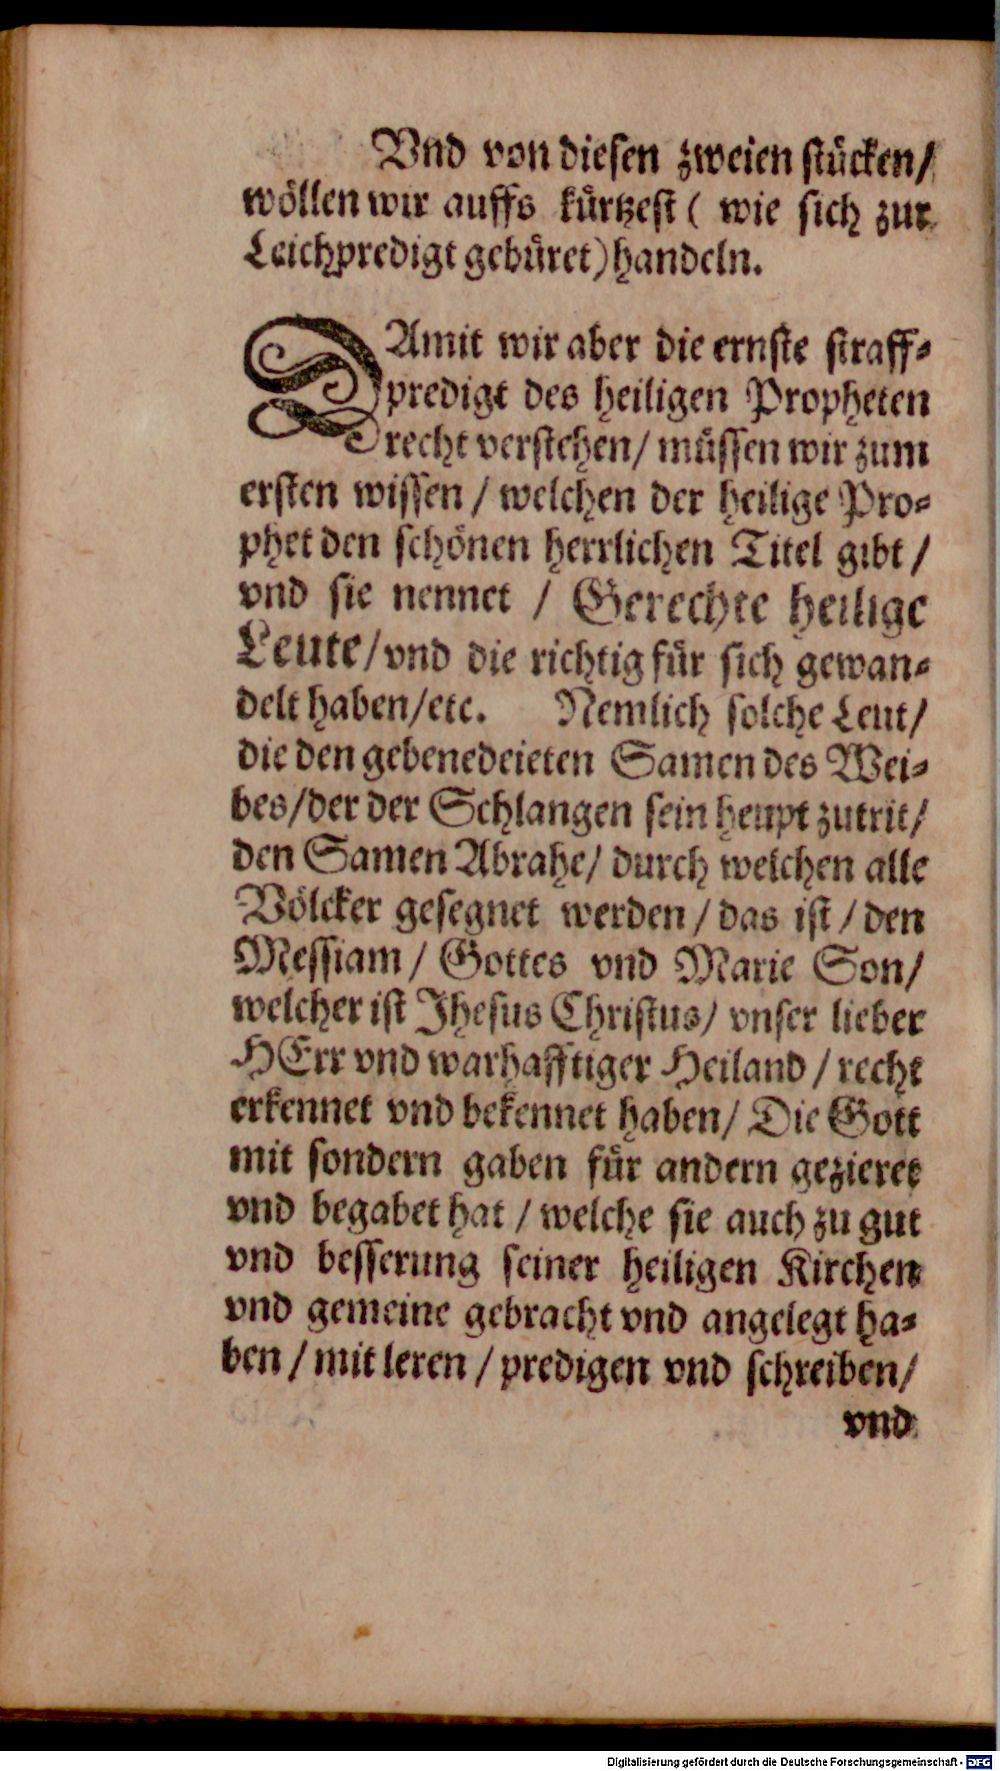 Vnd von diesen zweien stücken/
wöllen wir auffs kürtzest ( wie sich zur
Leichpredigt gebüret) handeln.
DAmit wir aber die ernste straff⸗
predigt des heiligen Propheten
recht verstehen/ müssen wir zum
ersten wissen / welchen der heilige Pro⸗
phet den schönen herrlichen Titel gibt /
vnd sie nennet / Gerechte heilige
Leute/ vnd die richtig für sich gewan⸗
delt haben/etc. Nemlich solche Leut/
die den gebenedeieten Samen des Wei⸗
bes/der der Schlangen sein heupt zutrit/
den Samen Abrahe/ durch welchen alle
Völcker gesegnet werden / das ist / den
Messiam / Gottes vnd Marie Son/
welcher ist Jhesus Christus/ vnser lieber
HErr vnd warhafftiger Heiland / recht
erkennet vnd bekennet haben/ Die Gott
mit sondern gaben für andern gezieret
vnd begabet hat / welche sie auch zu gut
vnd besserung seiner heiligen Kirchen
vnd gemeine gebracht vnd angelegt ha⸗
ben / mit leren / predigen vnd schreiben/
vnd
Digitalisierung gefördert durch die Deutsche Forschungsgemeinschaft - DFG